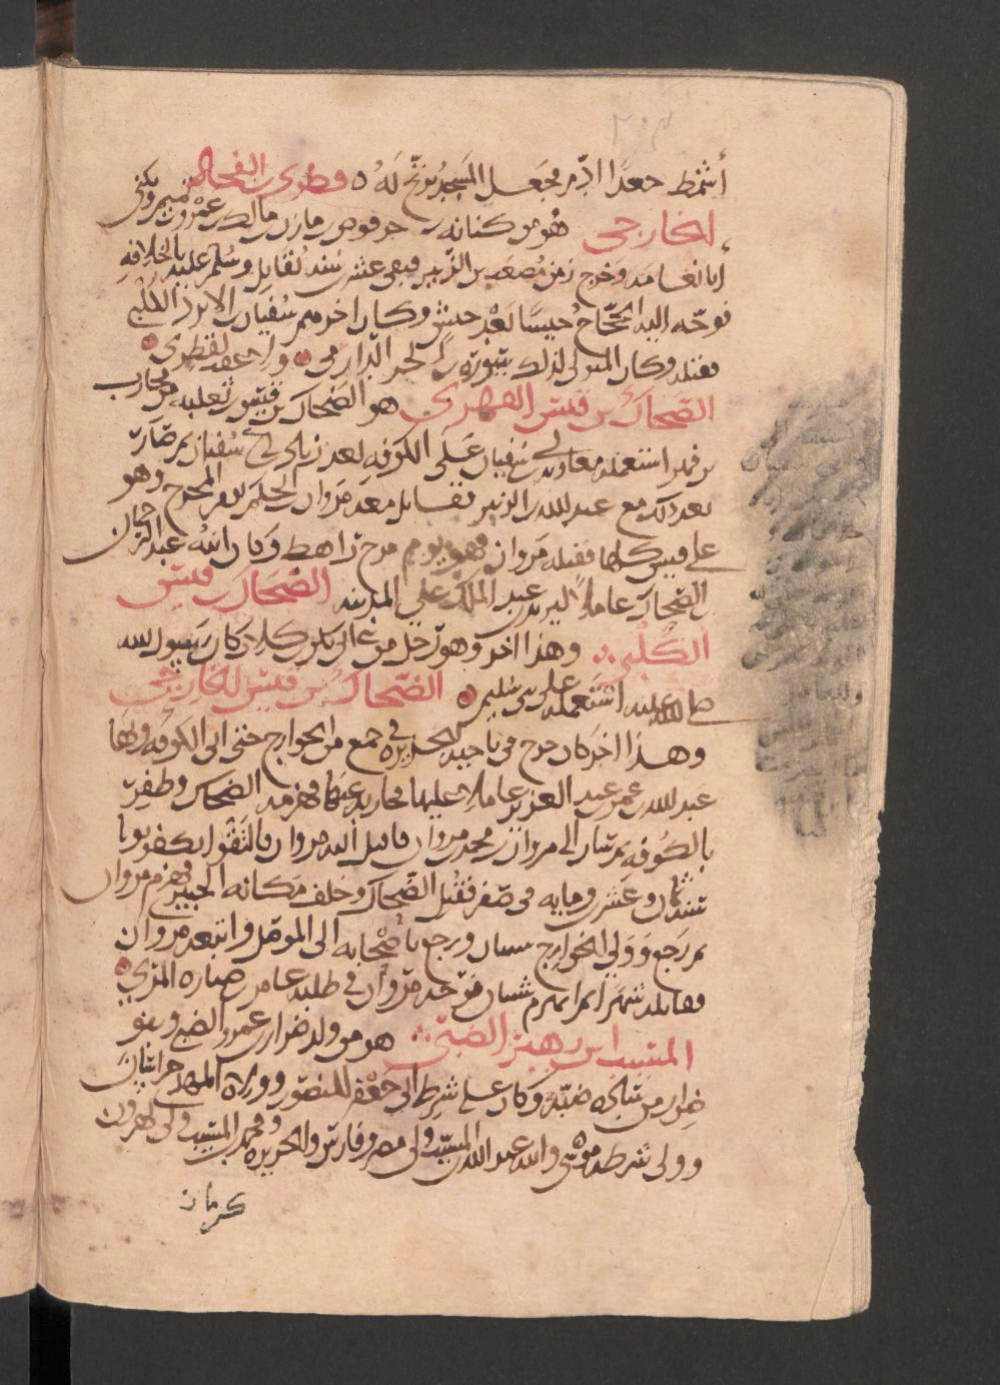 أشمط جعدًا آدم فجعل المسجد يرتج له ٥ قطري بن الفجاة
الخارجي هو من كنانه بن حرقوص بن مازن بن مالك بن عمرو بن تميم ويكنى
أبا نعامه وخرج زمن مصعب بن الزبير فبقي عشرين سنه يقاتل ويسلم عليه بالخلافه
فوجه اليه الحجاج جيشًا بعد جيش وكان اخرهم سفيان بن الابرد الكلبي
فقتله وكان المتولي لذلك سورة بن الحر الدارمي ولا عقب لقطري
الضحاك بن قيس الفهري هو الضحاك بن قيس بن ثعلبه بن محارب
بن فهر استعمله معاويه بن ابي سفيان على الكوفه بعد زياد بن ابي سفيان ثم صارت
بعد ذلك مع عبد الله بن الزبير فقاتل معه مروان بن الحكم يوم المرج وهو
على قيس كلها فقتله مروان فهو يوم مرج راهط وكان ابنه عبد الرحمان
بن الضحاك عاملا ليزيد بن عبد الملك على المدينه الضحاك بن قيس
الكلبي وهذا اخر وهو رجل من بني كلاب كان رسول الله
صلى الله عليه استعمله على بني سليم الضحاك بن قيس الخارجي
وهذا اخر كان خرج من ناحيه الجزيره في جمع من الخوارج حتى اتى الكوفه وبها
عبد الله بن عمر بن عبد العزيز عاملا عليها فحاربه عنها فهزمه الضحاك وظفر
بالكوفه ثم سار الى مروان بن محمد بن مروان فاقبل اليه مروان فالتقوا بكفر توثا
سنه ثمان وعشرين ومايه في صفر فقتل الضحاك وخلف مكانه الخيبري فهزم مروان
ثم رجع وولي الخوارج شيبان ورجع باصحابه الى الموصل واتبعه مروان
فقاتله شهرا ثم انهزم شيبان فوجه مروان في طلبه عامر بن ضباره المري
المسيب بن زهير الضبي هو من ولد ضرار بن عمرو الضبي وبنو
ضرار من سادة ضبه وكان على شرط ابي جعفر المنصور وولاه المهدي خراسان
وولي شرطه موسى وابنه عبد الله بن المسيب ولي مصر وفارس والجزيره ومحمد بن المسيب ولي لهرون
كرمان